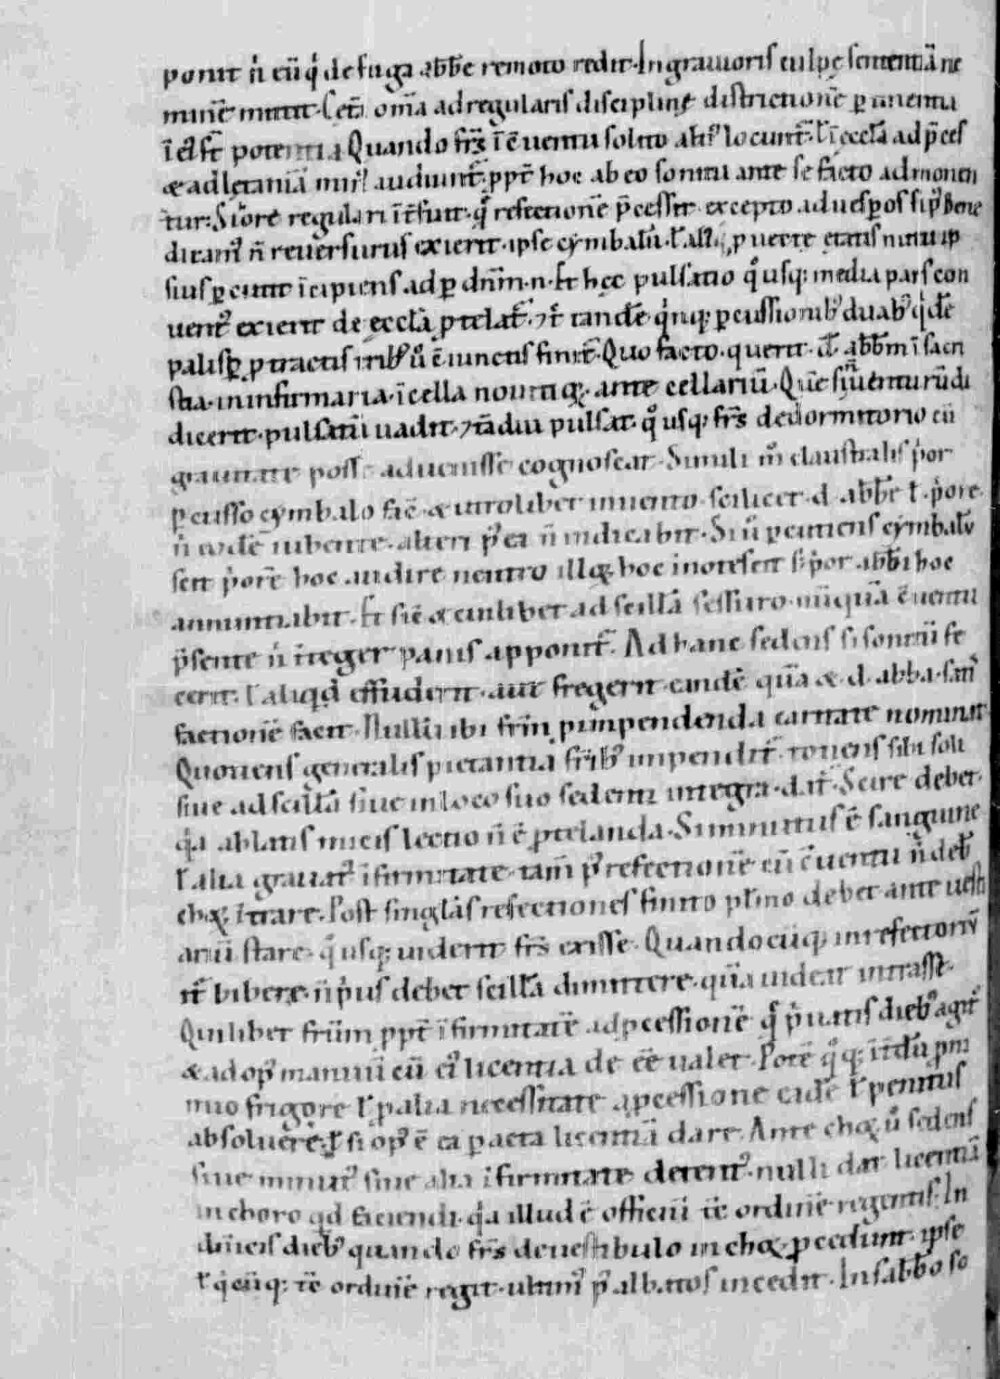 ponit n̄ cū q̇ de fuga abb̄e remoto redit. In grauioris culpę sententiā ne
minē mittit. Cet̄a om̄a ad regularis disciplinę districtionē ꝑtinentia
ī ei᷒ sт̄ potentia Quando fr̄s ī ꝯuentu solito alti᷒ locunt᷑. ł ī ęccl̄a ad p̄ces
& ad lętaniā audiunt᷑. ꝓpt̄ hoc ab eo sonitu ante se facto admonen
tur. Si ore regulari refectionē p̄cesserit excepto ad uesꝑos si p᷒ bene
dicam᷒ n̄ reuersurus exierit. ipse cymbalū ł ali᷒ ꝓuectę ętatis nutu ip
sius ꝑcutit īcipiens ad ꝑ dn̄m. n. Et hęc pulsatio q᷒usq; media pars con
uent᷒ exierit de ęccl̄a ꝓtelat᷑. tandē q̇nq; ꝑcussionib᷒ duab᷒ q̇dē
ꝓtractis trib᷒ ů ꝯiunctis finit᷑. Quo facto. querit. d. abb̄m ī sacri
stia. in infirmaria. ī cella nouitioꝝ. ante cellariū. Quē si inuenturū di
dicerit. pulsatū uadit. 7 tādiu pulsat. q᷒usq; fr̄s de dormitorio cū
grauitate posse aduenisse cognoscat. Simili m̊ claustralis p̓or
ꝑcusso cymbalo faciē & utrolibet inuento scilicet d. abb̄e ł p̓ore
n̄ eodē iubente. alteri p᷒ea n̄ indicabit. Si ů ꝑcutiens cymbalū
scit p̓orē hoc audire neutro illoꝝ hoc innotescit. S; p̓or abb̄i hoc
annuntiabit. Et sic & cuilibet ad scillā sessuro nūquā ꝯuentu
p̄sente n̄ īteger panis apponit᷑. Ad hanc sedens si sonitū fe
cerit. ł aliq̇d effuderit. aut fregerit eandē quā & d. abba satis
factionē facit. Nullū ibi fr̄m ꝓ impendenda caritate nominat
Quotiens generalis pietantia fr̄ib᷒ impendit᷑. totiens sibi soli
siue ad scillā siue in loco suo sedenti integra dat᷑. Scire debet.
q̇a ablatis micis lectio n̄ ē ꝓtelanda. Si minutus ē sanguine
ł alia grauat᷑ īfirmitate. tam̄ p᷒ refectionē cū ꝯuentu n̄ deb̄
choꝝ ītrare. Post singlās refectiones finito p̓mo debet ante uesti
ariū stare. q᷒usq; uiderit fr̄s exisse. Quandocūq; in refectoriū
it᷑ bibere. n̄ p̓us debet scillā dimittere. quā uideat intrasse.
Quilibet fr̄um ꝓpt̄ īfirmitatē ad ꝓcessionē quę p̓uatis dieb᷒ agit᷑
& ad op᷒ manuū cū ei᷒ licentia deesse ualet. Potē q᷒q; īt̄dū ꝓ ni
mio frigore ł ꝓ alia necessitate a ꝓcessione eadē ł penitus
absoluere. ł si op᷒ ē ea ꝑacta licentiā dare. Ante choꝝ ů sedens
siue minut᷒ siue alia īfirmitate detent᷒. nulli dat licentiā
in choro q̇d faciendi. q̇a illud ē officiū tc̄ ordinē regentis. In
dn̄icis dieb᷒ quando fr̄s de uestibulo in choꝝ ꝓcedunt. ipse
ł q̇cūq; tc̄ ordinē regit. ultim᷒ p᷒ albatos incedit. In sabb̄o so